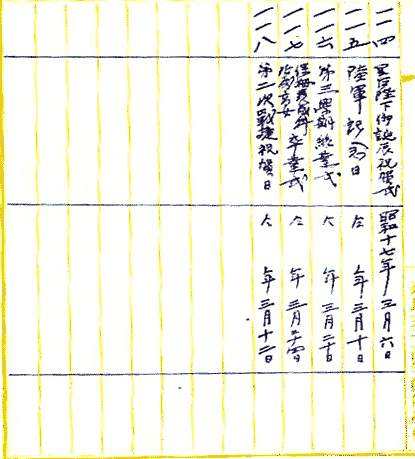 一一四 皇后陛下御誕辰祝賀式 昭和十七年三月六日
一一五 陸軍記念日 仝年三月十日
一一六 第三學期終業式 仝年三月二十日
一一七 卒業式 仝年三月二十四日
一一八 第二次戰捷祝賀日 仝年三月十二日